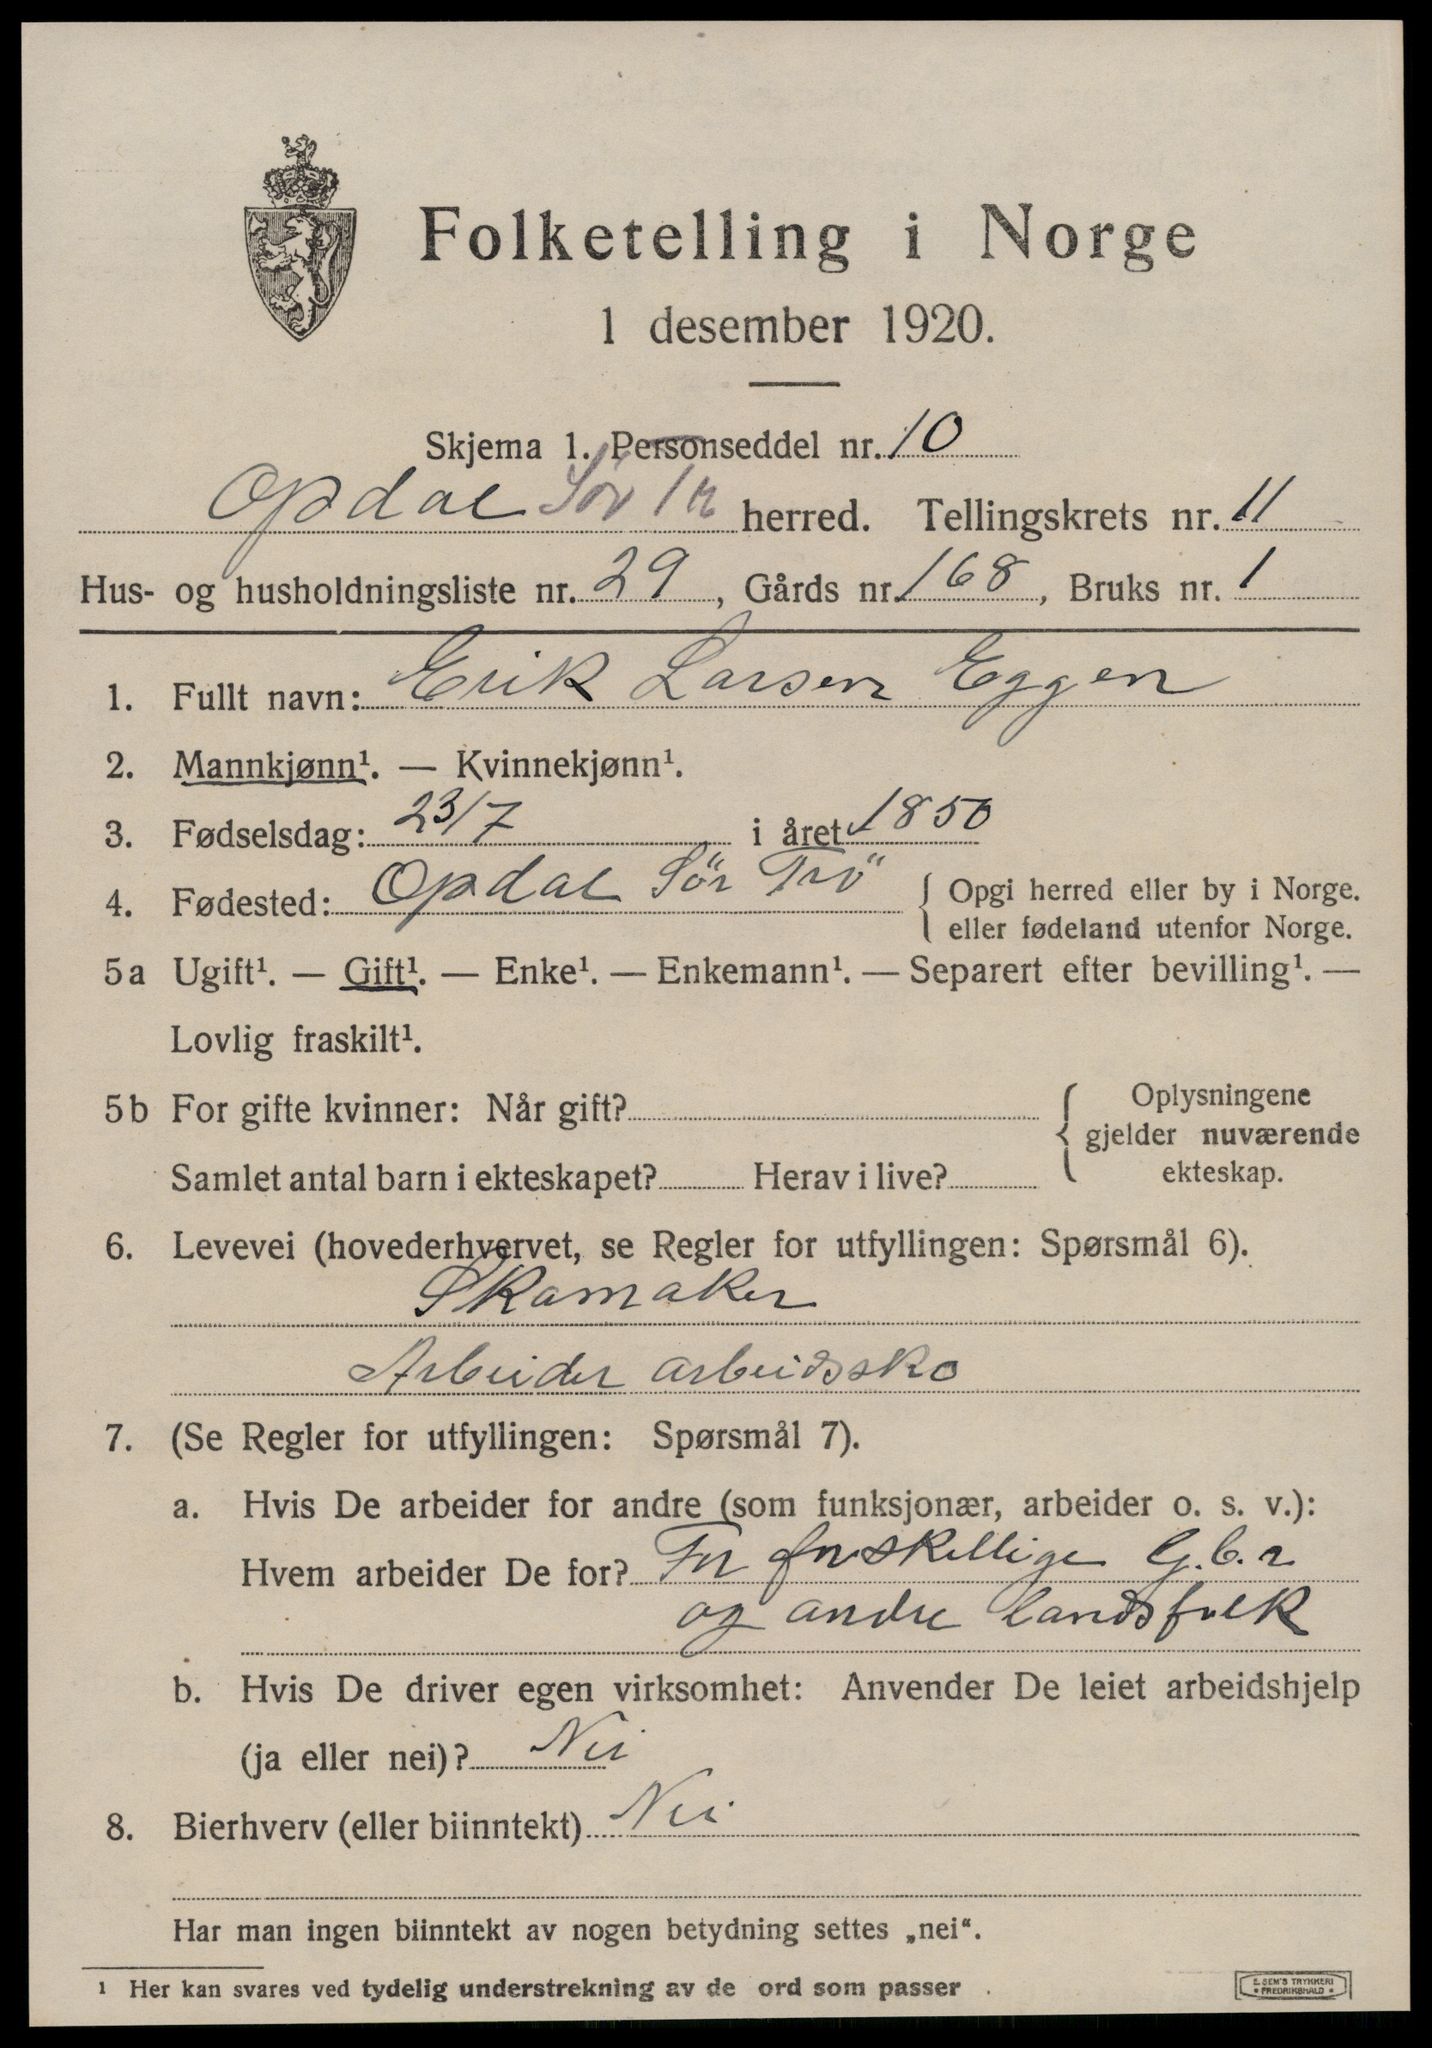 Folketelling i Norge
1 desember 1920.
Skjema 1. Personseddel nr. 10
Opdal Sør Tr herred. Tellingskrets nr. 11
Hus- og husholdningsliste nr. 29, Gårds nr. 168, Bruks nr. 1
1. Fullt navn: Erik Larsen Eggen
2. Mannkjønn¹. — Kvinnekjønn¹.
3. Fødselsdag: 23/7 i året 1850
4. Fødested: Opdal Sör Trö { Opgi herred eller by i Norge.
eller fødeland utenfor Norge.
5a Ugift¹. — Gift¹. — Enke¹. — Enkemann¹. — Separert efter bevilling¹. —
Lovlig fraskilt¹.
5b For gifte kvinner: Når gift? { Oplysningene
gjelder nuværende
Samlet antal barn i ekteskapet? Herav i live? ekteskap.
6. Levevei (hovederhvervet, se Regler for utfyllingen: Spørsmål 6).
Skomaker
Arbeider arbeidssko
7. (Se Regler for utfyllingen: Spørsmål 7).
a. Hvis De arbeider for andre (som funksjonær, arbeider o. s. v.):
Hvem arbeider De for? For forskellige G.b.r
og andre landsfolk
b. Hvis De driver egen virksomhet: Anvender De leiet arbeidshjelp
(ja eller nei)? Nei
8. Bierhverv (eller biinntekt) Nei
Har man ingen biinntekt av nogen betydning settes „nei“.
¹ Her kan svares ved tydelig understrekning av de ord som passer
E. SEM'S TRYKKERI
FREDRIKSHALD